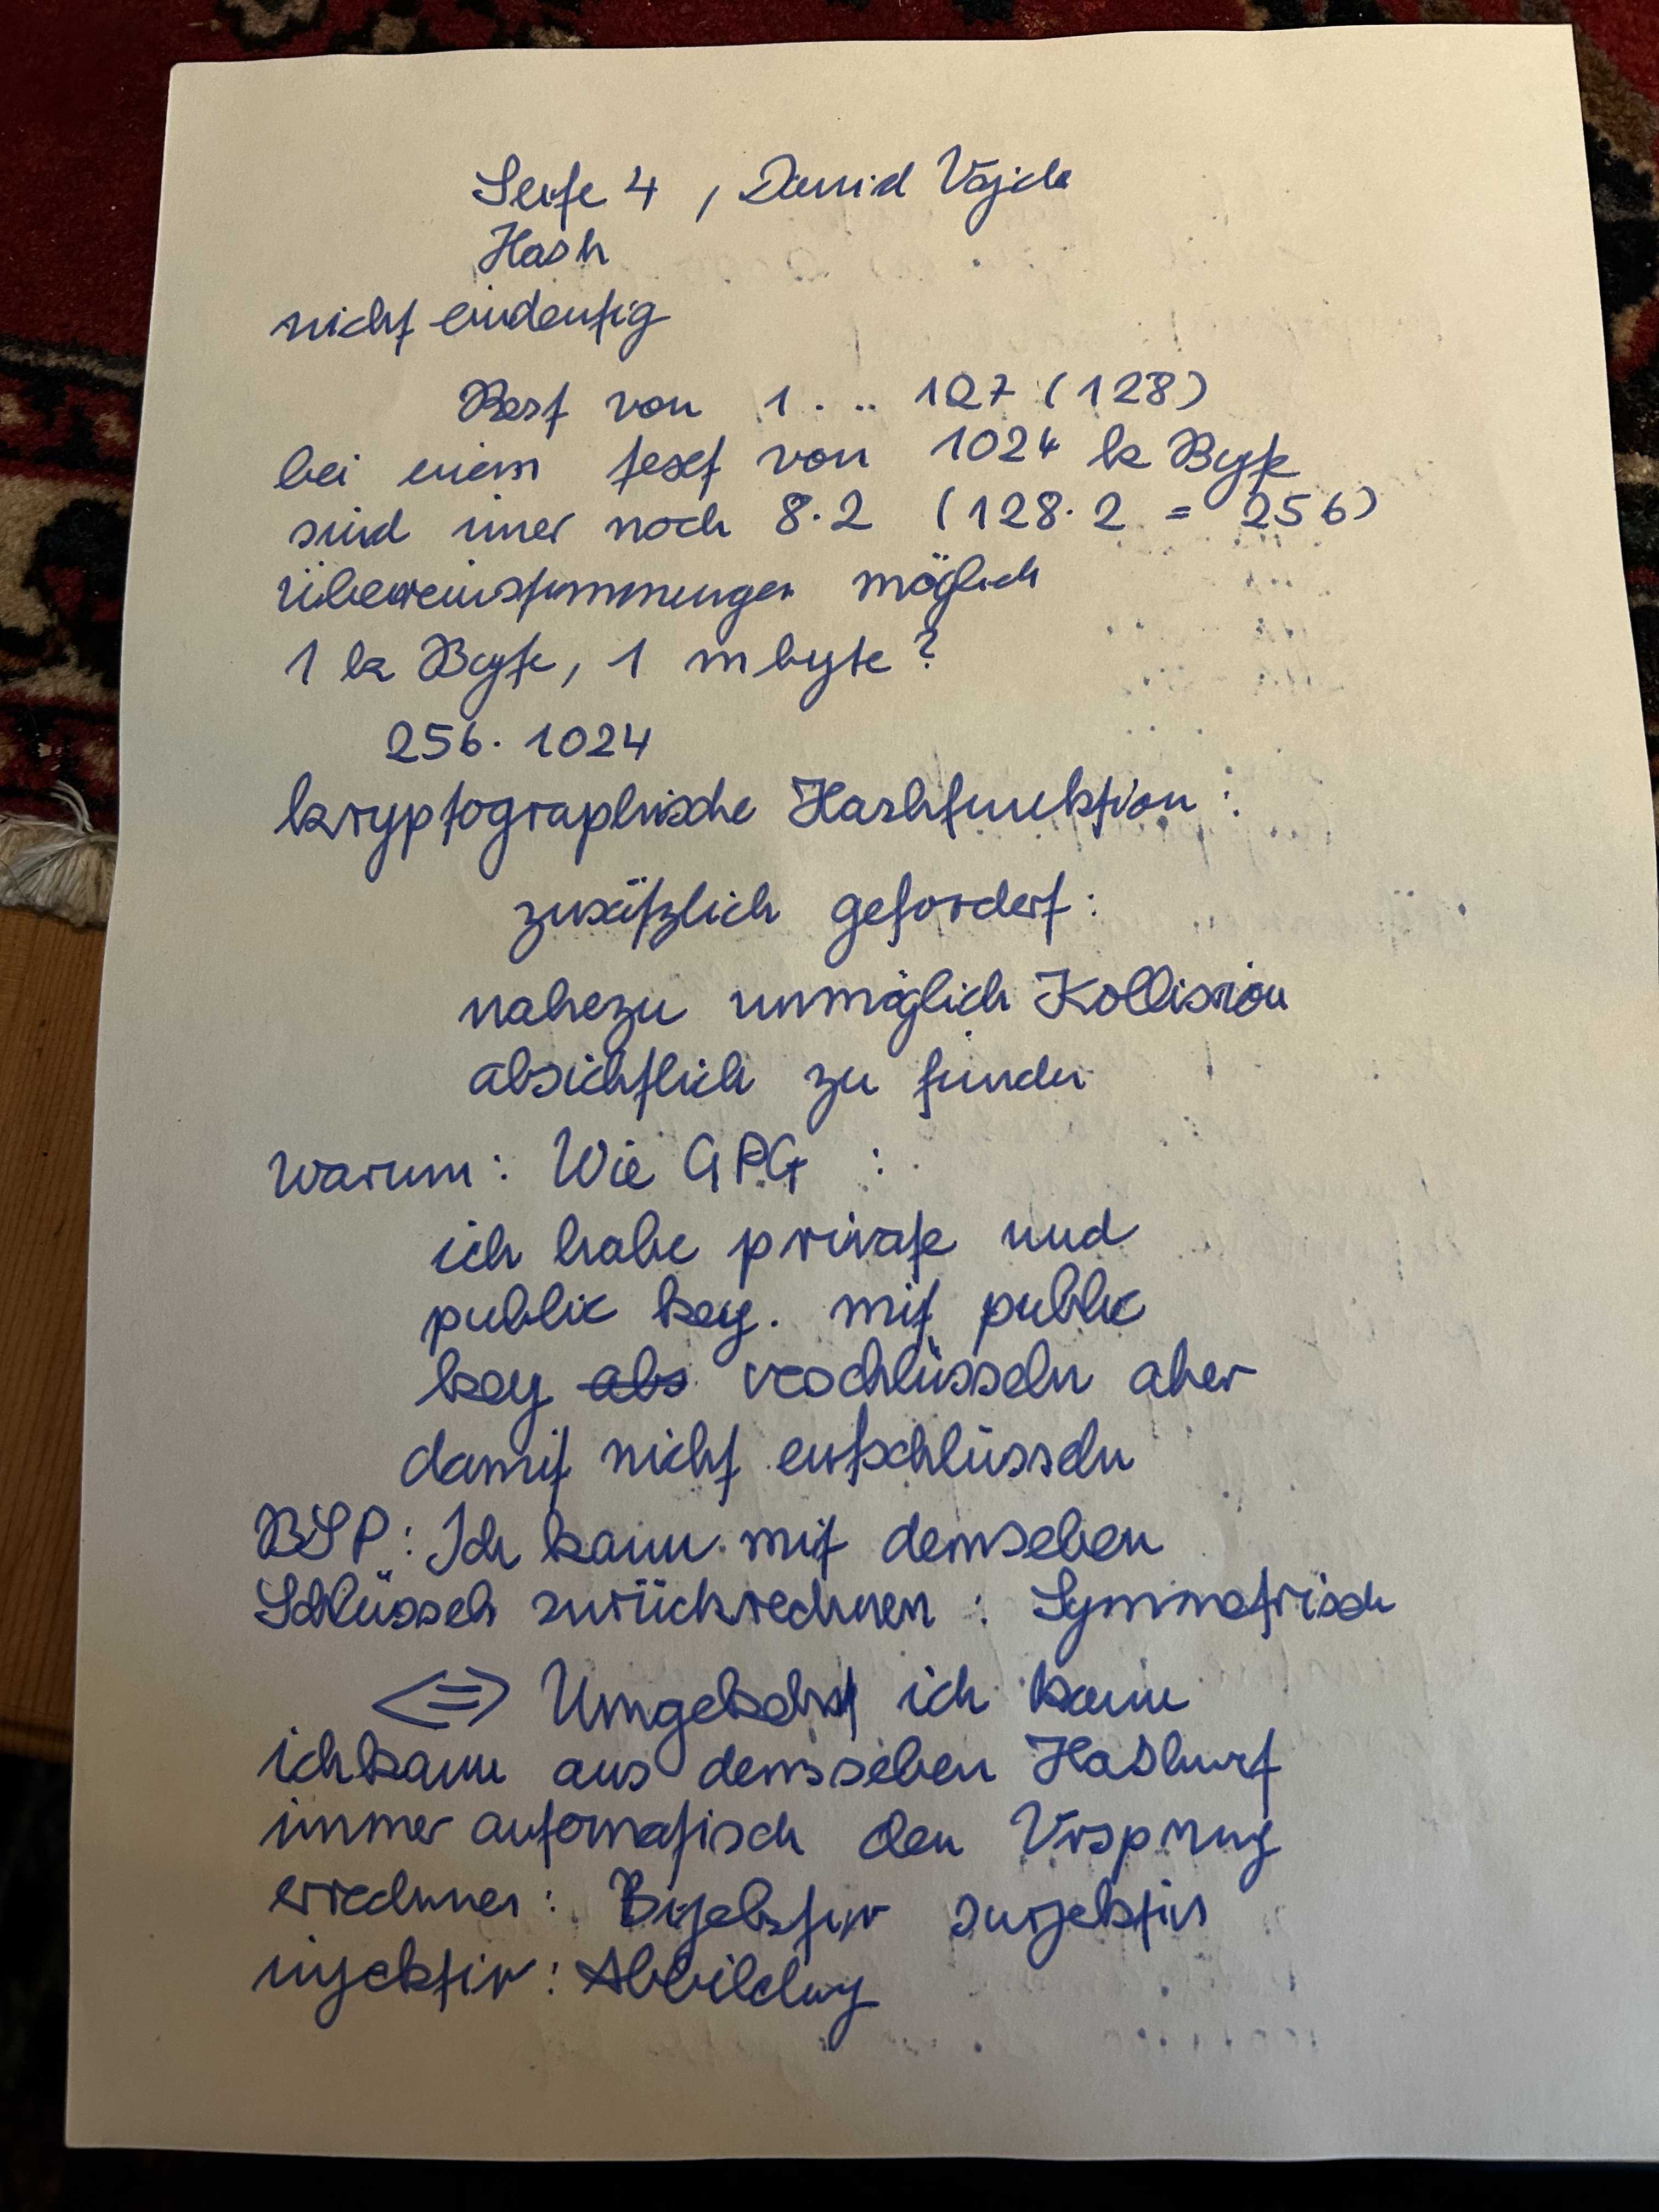 Seite 4, David Vajda
Hash
nicht eindeutig
Rest von 1... 127 (128)
bei einem text von 1024 k Byte
sind imer noch 8·2 (128·2 = 256)
übereinstimmungen möglich
1 k Byte, 1 mbyte?
256·1024
kryptographische Hashfunktion:
zusätzlich gefordert:
nahezu unmöglich Kollision
absichtlich zu finden
warum: Wie GPG :
ich habe private und
public key. mit public
key abs verschlüsseln aber
damit nicht entschlüsseln
BSP: Ich kann mit demseben
Schlüsseln zurückrechnen: Symmetrisch
<=> Umgekehrt ich kann
ich kann aus demsseben Hashwert
immer automatisch den Ursprung
errechnen: Bijektiv surjektiv
injektiv: Abbildung